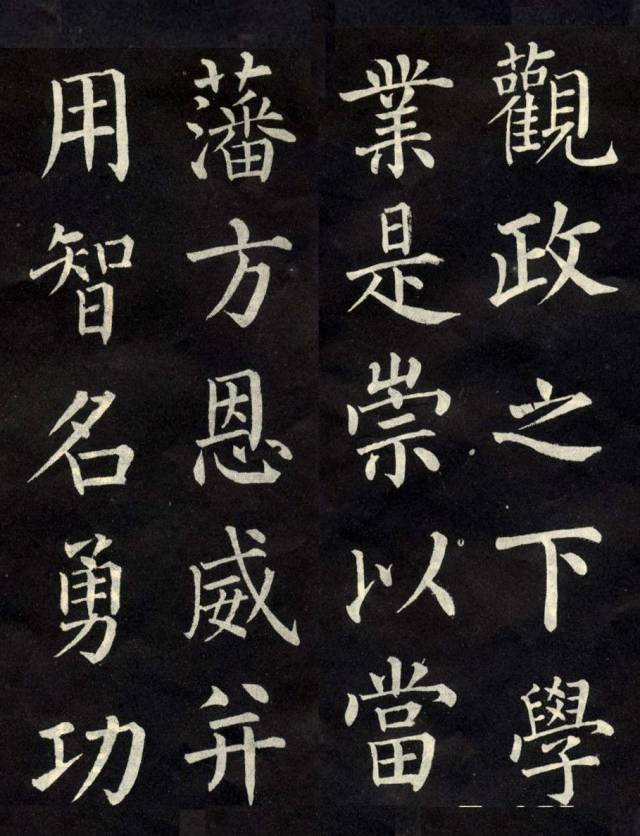 觀政之下學
業是崇以當
藩方恩威并
用智名勇功